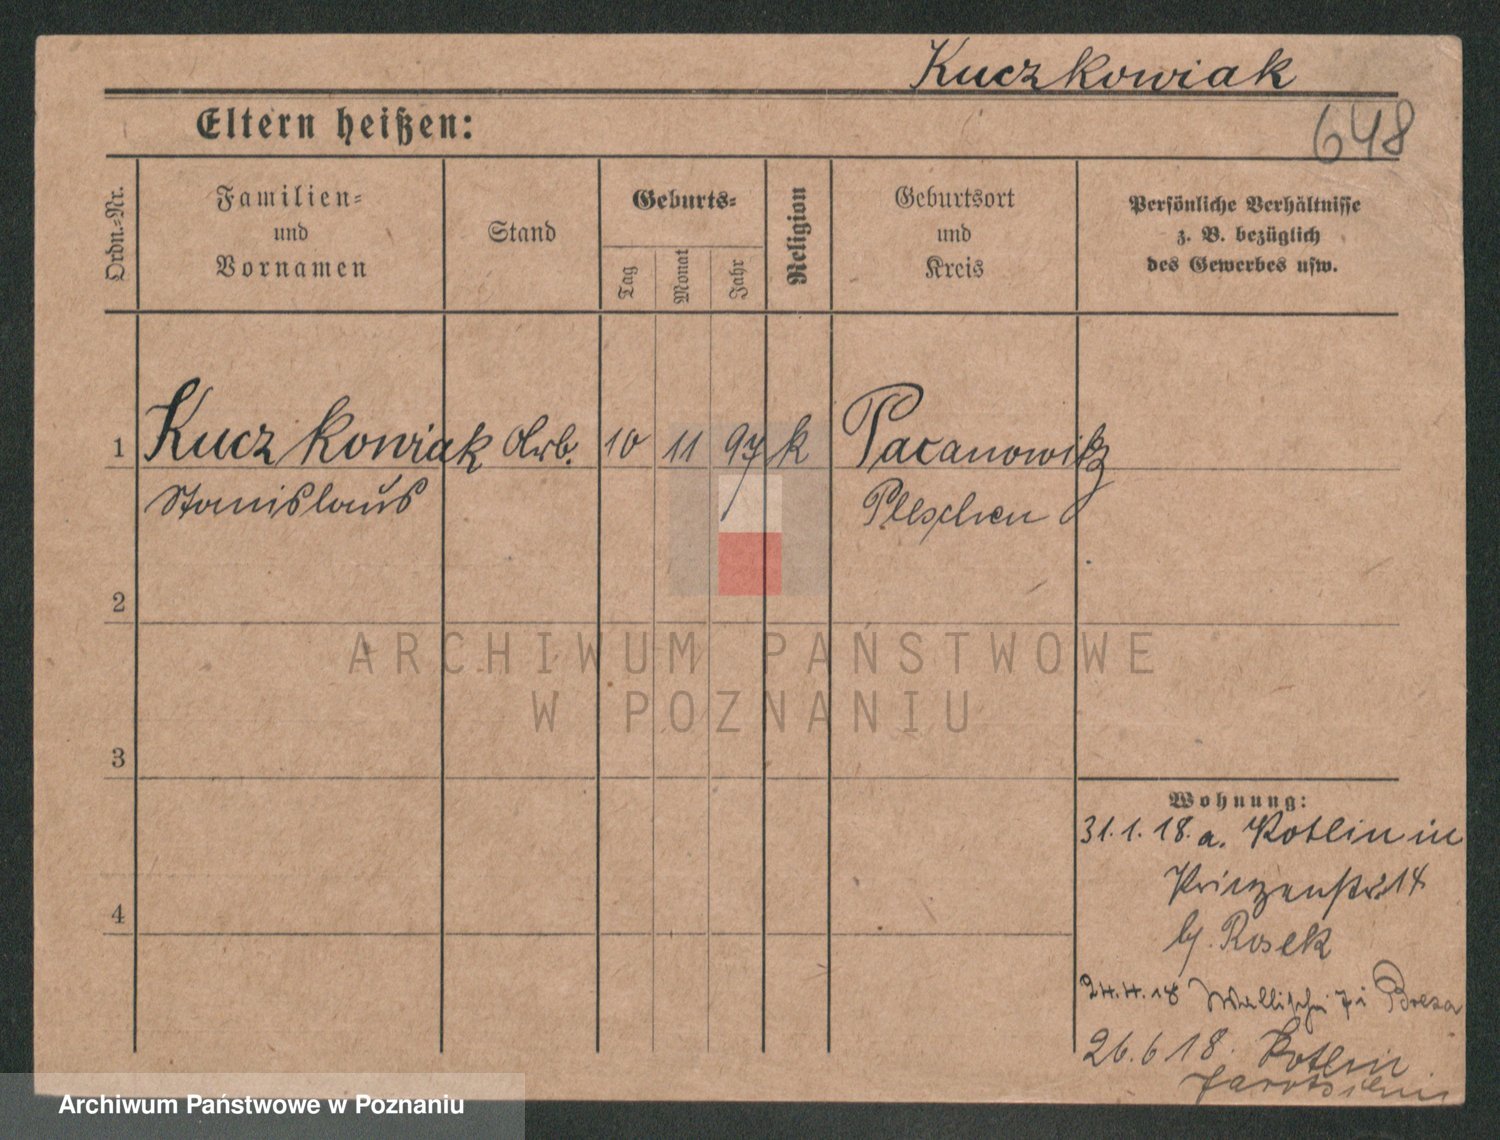 Kuczkowiak
648
Eltern heißen:
Ordn.=Nr.
Familien=
und
Vornamen
Stand
Geburts=
Tag
Monat
Jahr
Religion
Geburtsort
und
Kreis
Persönliche Verhältnisse
z. B. bezüglich
des Gewerbes usw.
1 Kuczkowiak Arb. 10 11 97 k Pacanowitz
Stanislaus Pleschen
2
3
4
ARCHIWUM PAŃSTWOWE
W POZNANIU
Wohnung:
31.1.18. a. Kotlin in
Prinzenstr. 14
b. Rosek
24.4.18 Wallischei
26.6 18. Kotlin
Jarotschin
Archiwum Państwowe w Poznaniu